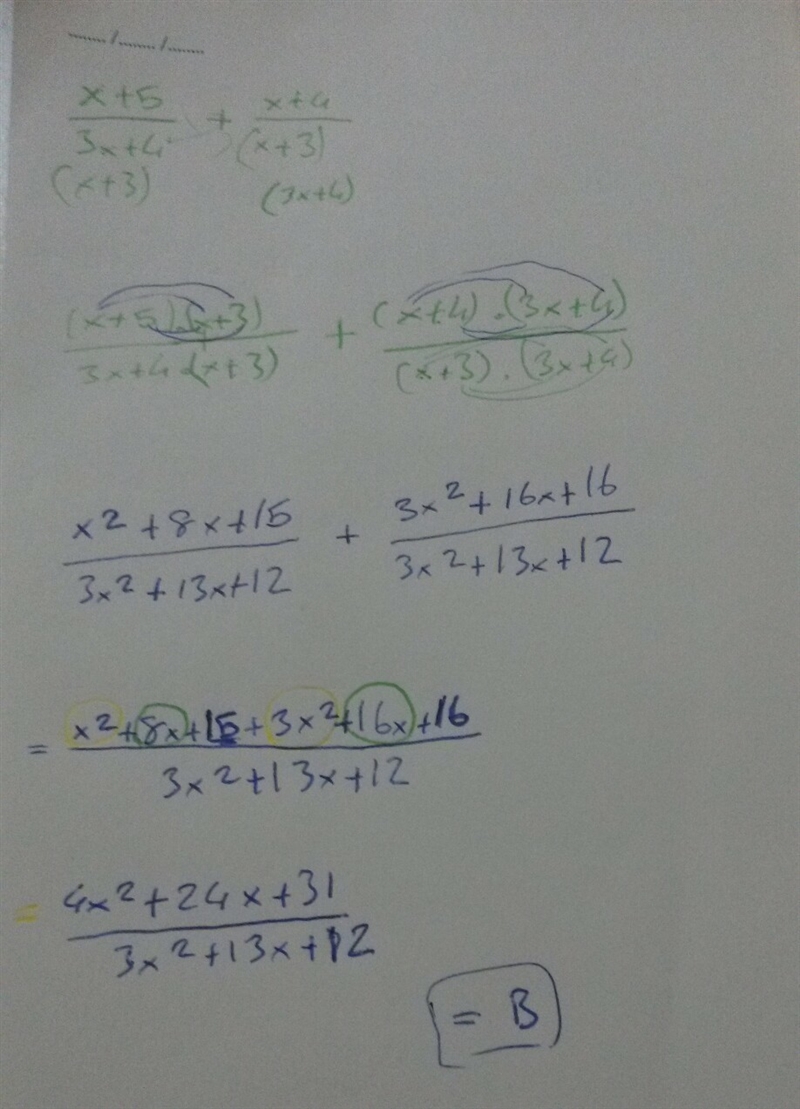 ......../......../........
x+5/3x+4 + x+4/(x+3)
(x+3) (3x+4)
(x+5).(x+3)/3x+4.(x+3) + (x+4).(3x+4)/(x+3).(3x+4)
x²+8x+15/3x²+13x+12 + 3x²+16x+16/3x²+13x+12
= x²+8x+15+3x²+16x+16/3x²+13x+12
= 4x²+24x+31/3x²+13x+12
= B